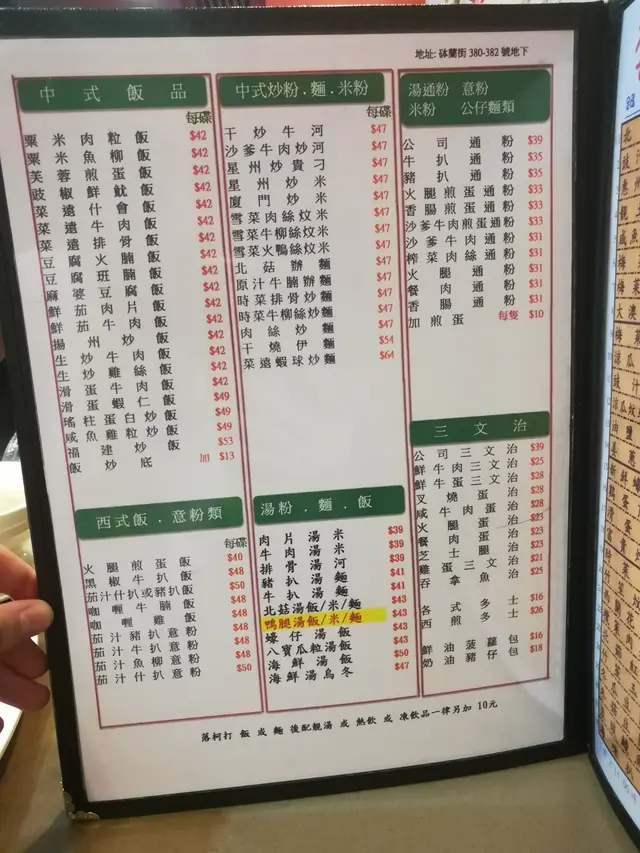 地址: 砵蘭街 380-382 號地下
中式飯品
每碟
粟米肉粒飯 $42
粟米魚柳飯 $42
芙蓉煎蛋飯 $42
豉椒鮮魷飯 $42
菜遠什會飯 $42
菜遠牛肉飯 $42
菜遠排骨飯 $42
豆腐火腩飯 $42
豆腐班腩飯 $42
麻婆豆腐飯 $42
鮮茄肉片飯 $42
鮮茄牛肉飯 $42
揚州炒飯 $42
生炒牛肉飯 $42
生炒雞絲飯 $42
滑蛋牛肉飯 $42
滑蛋蝦仁飯 $49
瑤柱蛋白炒飯 $49
咸魚雞粒炒飯 $49
福建炒飯 $53
飯炒底 加 $13
中式炒粉.麵.米粉
每碟
干炒牛河 $47
沙爹牛肉炒河 $47
星州炒貴刁 $47
星州炒米 $47
廈門炒米 $47
雪菜肉絲炆米 $47
雪菜牛柳絲炆米 $47
雪菜火鴨絲炆米 $47
北菇辦麵 $47
原汁牛腩辦麵 $47
時菜排骨炒麵 $47
時菜牛柳絲炒麵 $47
肉絲炒麵 $47
干燒伊麵 $54
菜遠蝦球炒麵 $64
湯通粉 意粉
米粉 公仔麵類
公司通粉 $39
牛扒通粉 $35
豬扒通粉 $35
火腿煎蛋通粉 $33
香腸煎蛋通粉 $33
沙爹牛肉煎蛋通粉 $33
沙爹牛肉通粉 $31
榨菜肉絲通粉 $31
火腿通粉 $31
餐肉通粉 $31
香腸通粉 $31
加煎蛋 每隻 $10
三文治
公司三文治 $39
鮮牛肉三文治 $25
鮮牛肉蛋三文治 $28
叉燒蛋 $28
咸牛肉蛋 $28
火腿蛋 $23
餐肉蛋 $23
芝士火腿 $23
蛋三文治 $21
吞拿魚 $25
各式多士 $16
西煎多士 $26
鮮油菠蘿包 $16
奶油豬仔包 $18
西式飯.意粉類
每碟
火腿煎蛋飯 $40
黑椒牛扒飯 $48
茄汁什扒或豬扒飯 $50
咖喱牛腩飯 $48
咖喱雞飯 $48
茄汁豬扒意粉 $48
茄汁牛扒意粉 $48
茄汁魚柳意粉 $48
茄汁什扒意粉 $50
湯粉.麵.飯
肉片湯米 $39
牛肉湯米 $39
排骨湯河 $39
豬扒湯麵 $41
牛扒湯麵 $41
北菇湯飯/米/麵 $43
鴨腿湯飯/米/麵 $43
蠔仔湯飯 $43
八寶瓜粒湯飯 $43
海鮮湯飯 $50
海鮮湯烏冬 $47
落柯打 飯 或 麵 後配靚湯 或 熱飲 或 凍飲品一律另加 10元